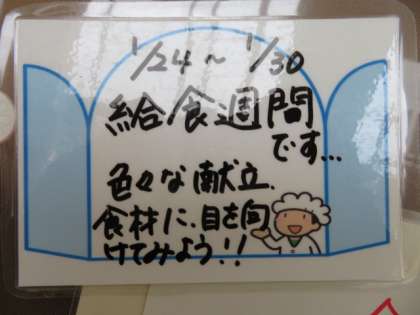 1/24～1/30
給食週間
です...
色々な献立、
食材に、目を向
けてみよう!!